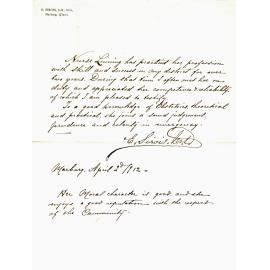 Marburg, Q'land.
Nurse Liening has practised her profession
with skill and success in my district for over
two years. During that time I often met her on
duty and appreciated her competence & reliability
of which I am pleased to testify.
To a good knowledge of Obstetrics, theoretical
and practical, she joins a sound judgement,
prudence and celerity in emergency.
E. Sirois
Marburg, April 2d 1912.
Her Moral character is good and she
enjoys a good reputation with the respect
of the Community